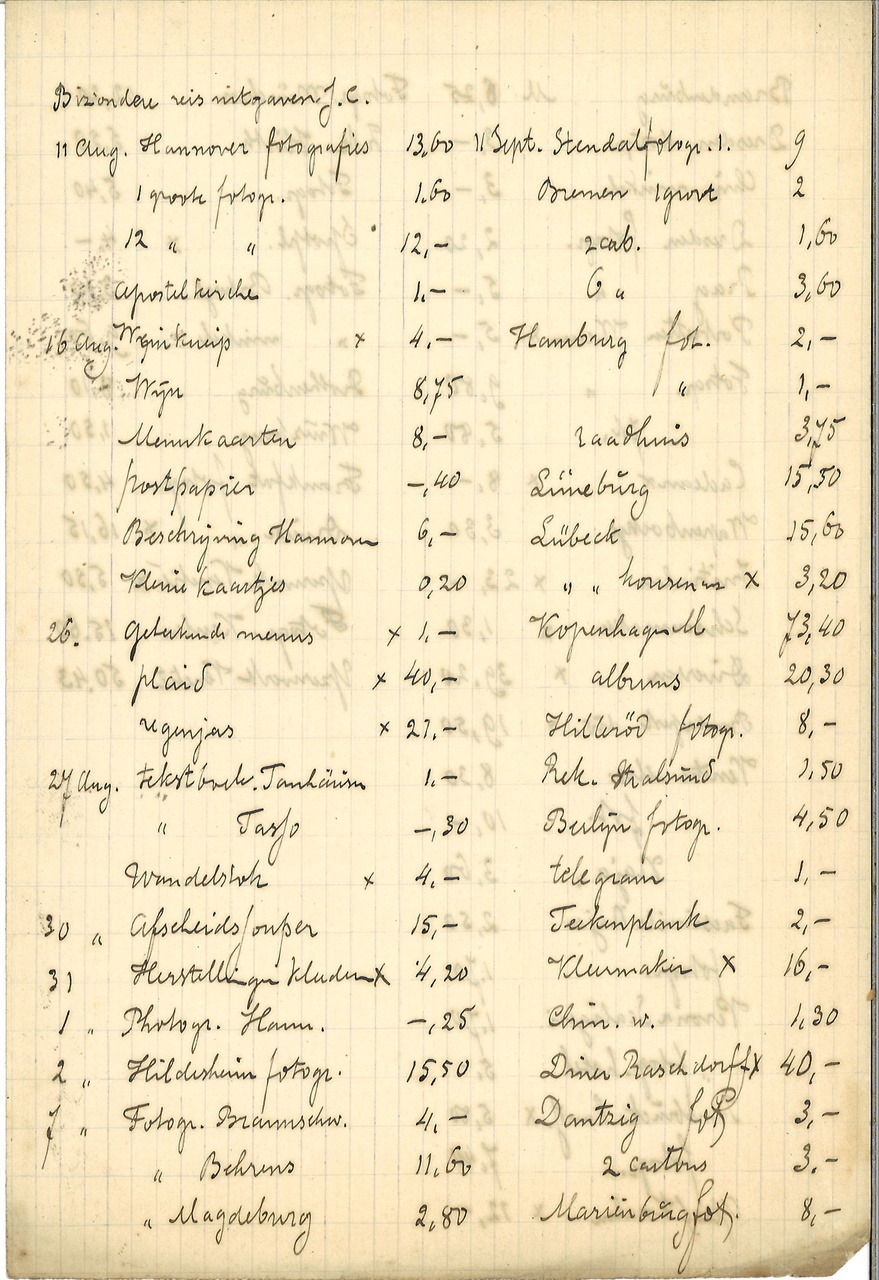 Bizondere reis uitgaven J.C.
11 Aug. Hannover fotografies 13,60
1 groote fotogr. 1,60
12 " " 12,-
Apostelkirche 1,-
16 Aug. Wijnkneip x 4,-
Wijn 8,75
Menukaarten 8,-
postpapier -,40
Beschrijving Hannover 6,-
Kleine kaartjes 0,20
26. Getekende menus x 1,-
plaid x 40,-
regenjas x 27,-
27 Aug. tekstboek. Tanhäuser 1,-
" Tasso -,30
Wandelstok x 4,-
30 " Afscheidssouper 15,-
31 Herstellingen kleederen x 4,20
1 " Photogr. Hann. -,25
2 " Hildesheim fotogr. 15,50
7 " Fotogr. Braunschw. 4,-
" Behrens 11,60
" Magdeburg 2,80
11 Sept. Stendal fotogr. 1. 9
Bremen 1 groot 2
2 cab. 1,60
6 " 3,60
Hamburg fot. 2,-
" 1,-
raadhuis 3,75
Lüneburg 15,50
Lübeck 15,60
" " x 3,20
Kopenhagen M 73,40
albums 20,30
Hilleröd fotogr. 8,-
Rek. Stralsund 1,50
Berlijn fotogr. 4,50
telegram 1,-
Teekenplank 2,-
Kleermaker x 16,-
Chin. w. 1,30
Diner Raschdorff x 40,-
Dantzig fot 3,-
2 cartons 3.-
Mariënburg fot. 8,-